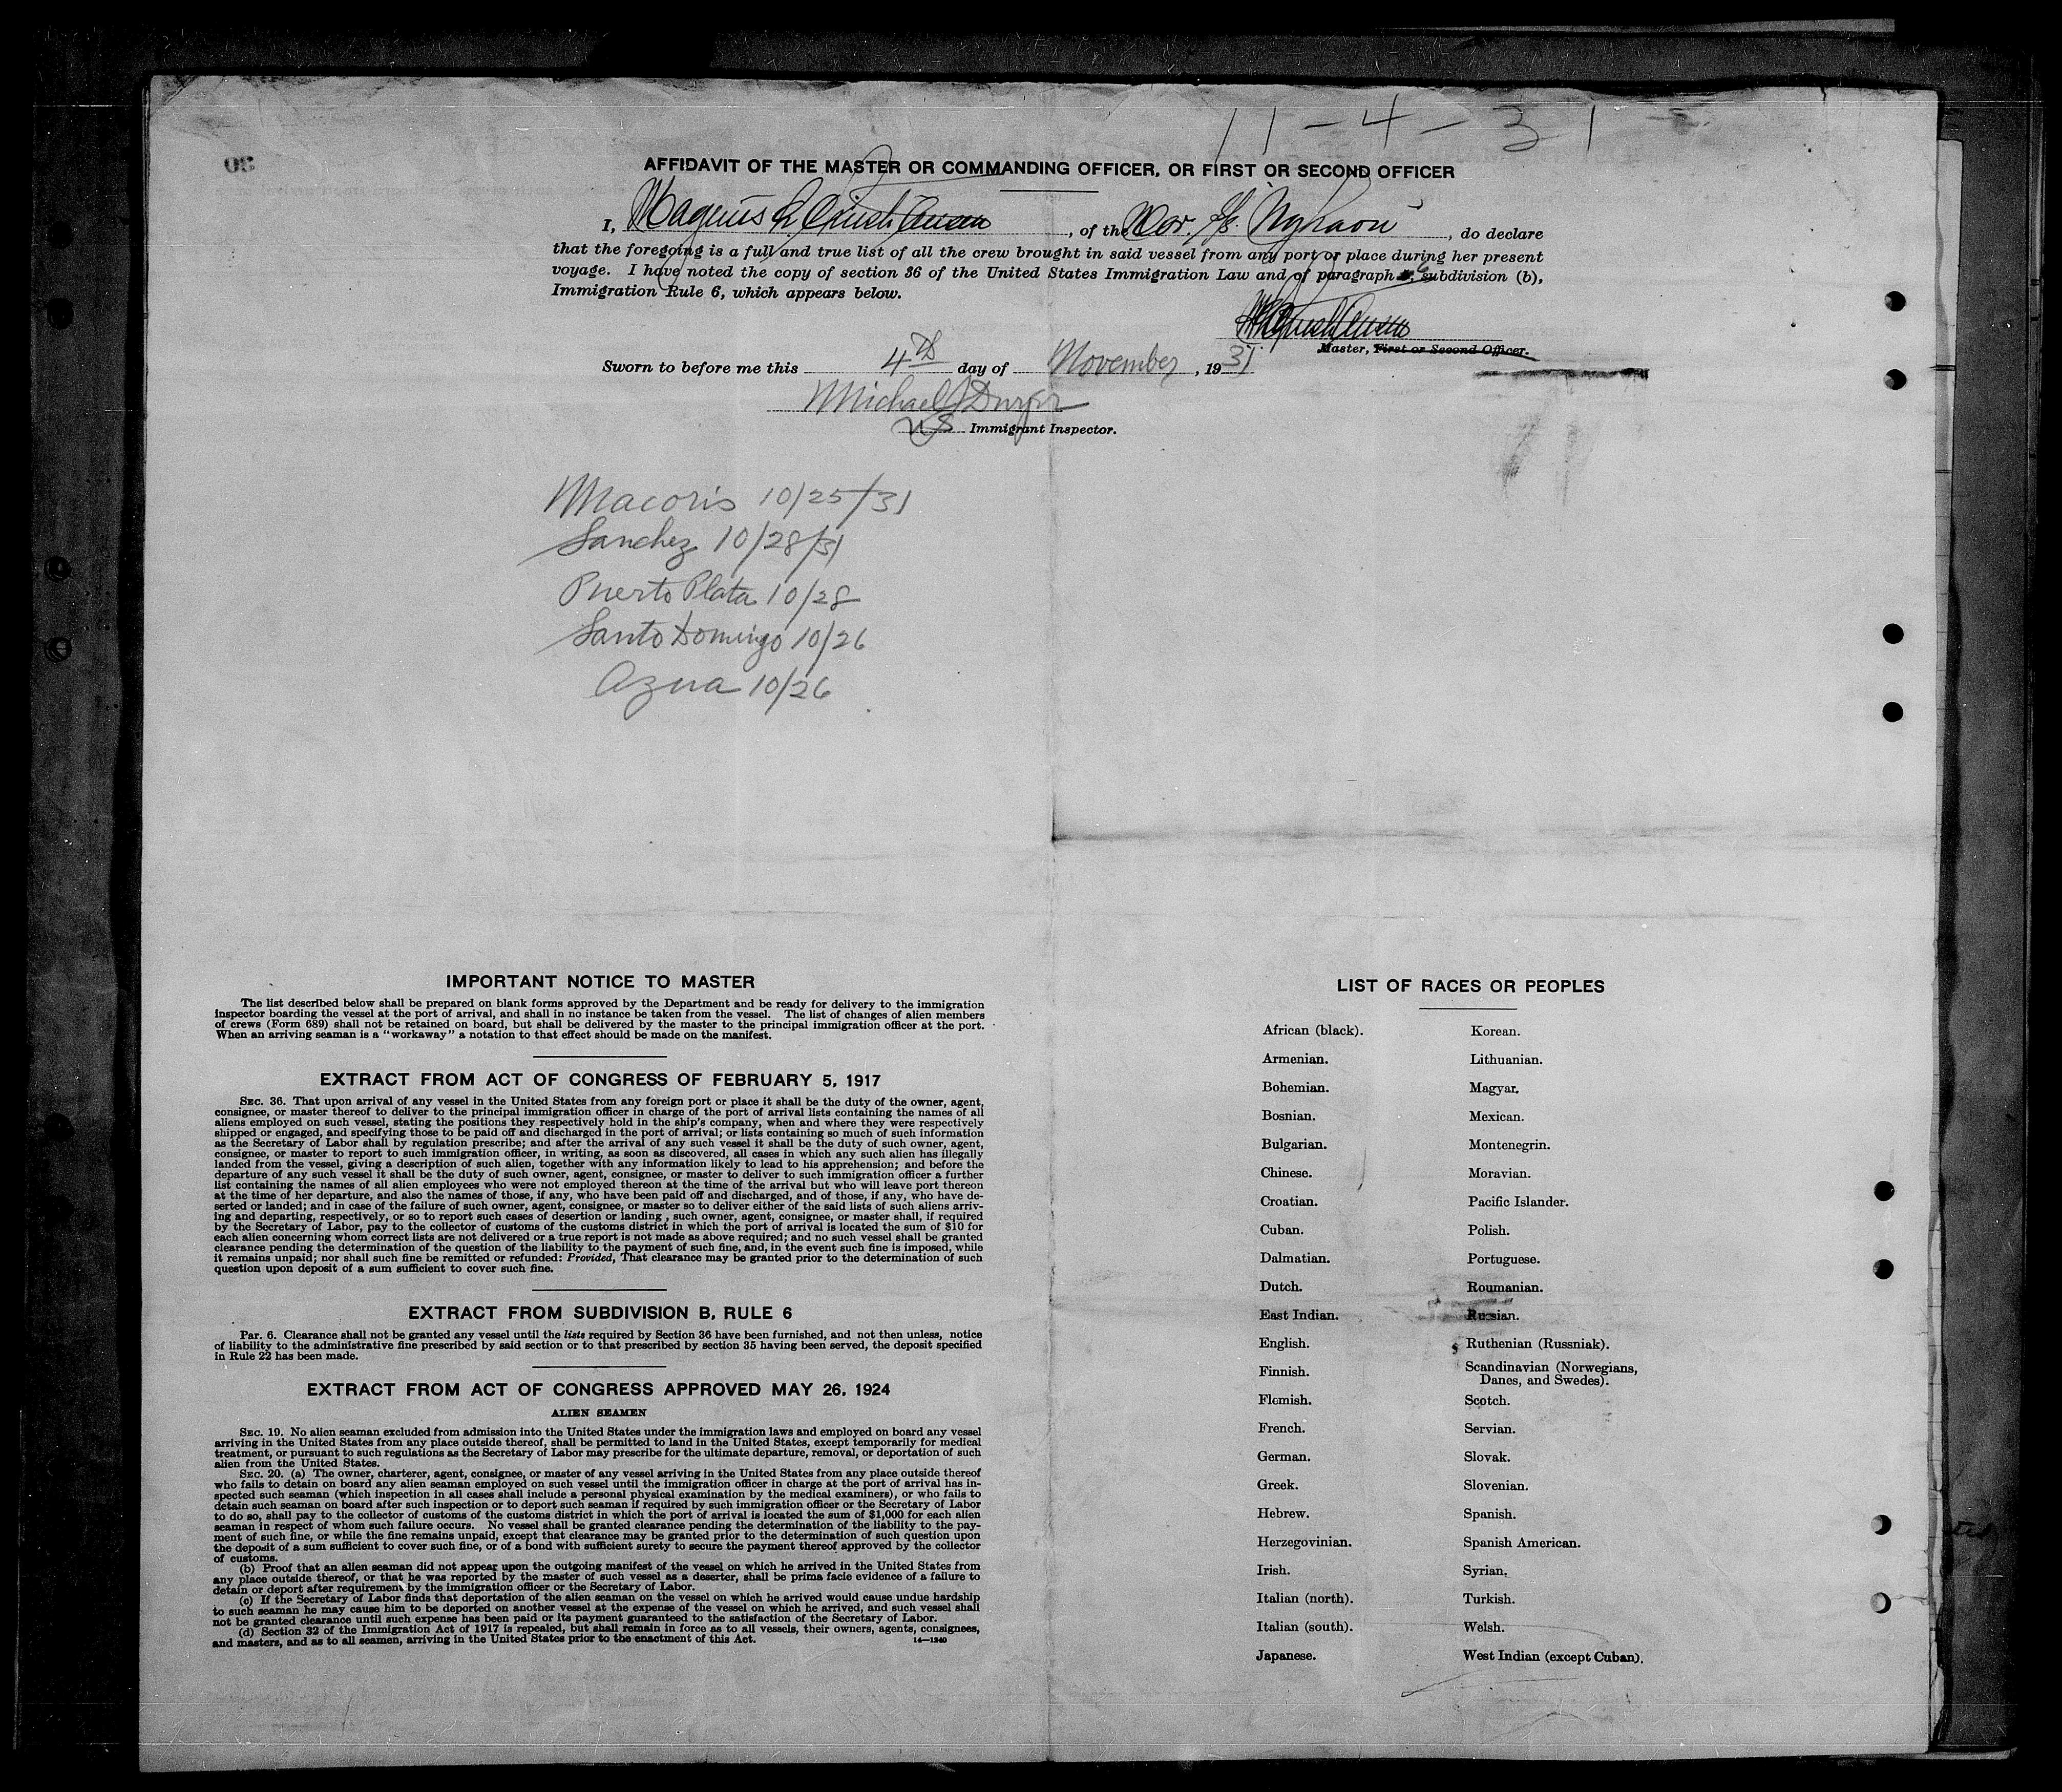 11-4-31
30
AFFIDAVIT OF THE MASTER OR COMMANDING OFFICER, OR FIRST OR SECOND OFFICER
I, Magnus Christiansen, of the Nor. SS. "Nyhavn", do declare
that the foregoing is a full and true list of all the crew brought in said vessel from any port or place during her present
voyage. I have noted the copy of section 36 of the United States Immigration Law and of paragraph 6, subdivision (b),
Immigration Rule 6, which appears below.
Master, First or Second Officer.
Sworn to before me this 4th day of November, 1931
Michael J Dwyer
US Immigrant Inspector.
Macoris 10/25/31
Sanchez 10/28/31
Puerto Plata 10/28
Santo Domingo 10/26
Azua 10/26
IMPORTANT NOTICE TO MASTER
The list described below shall be prepared on blank forms approved by the Department and be ready for delivery to the immigration
inspector boarding the vessel at the port of arrival, and shall in no instance be taken from the vessel. The list of changes of alien members
of crews (Form 689) shall not be retained on board, but shall be delivered by the master to the principal immigration officer at the port.
When an arriving seaman is a "workaway" a notation to that effect should be made on the manifest.
EXTRACT FROM ACT OF CONGRESS OF FEBRUARY 5, 1917
SEC. 36. That upon arrival of any vessel in the United States from any foreign port or place it shall be the duty of the owner, agent,
consignee, or master thereof to deliver to the principal immigration officer in charge of the port of arrival lists containing the names of all
aliens employed on such vessel, stating the positions they respectively hold in the ship's company, when and where they were respectively
shipped or engaged, and specifying those to be paid off and discharged in the port of arrival; or lists containing so much of such information
as the Secretary of Labor shall by regulation prescribe; and after the arrival of any such vessel it shall be the duty of such owner, agent,
consignee, or master to report to such immigration officer, in writing, as soon as discovered, all cases in which any such alien has illegally
landed from the vessel, giving a description of such alien, together with any information likely to lead to his apprehension; and before the
departure of any such vessel it shall be the duty of such owner, agent, consignee, or master to deliver to such immigration officer a further
list containing the names of all alien employees who were not employed thereon at the time of the arrival but who will leave port thereon
at the time of her departure, and also the names of those, if any, who have been paid off and discharged, and of those, if any, who have de-
serted or landed; and in case of the failure of such owner, agent, consignee, or master so to deliver either of the said lists of such aliens arriv-
ing and departing, respectively, or so to report such cases of desertion or landing , such owner, agent, consignee, or master shall, if required
by the Secretary of Labor, pay to the collector of customs of the customs district in which the port of arrival is located the sum of $10 for
each alien concerning whom correct lists are not delivered or a true report is not made as above required; and no such vessel shall be granted
clearance pending the determination of the question of the liability to the payment of such fine, and, in the event such fine is imposed, while
it remains unpaid; nor shall such fine be remitted or refunded: Provided, That clearance may be granted prior to the determination of such
question upon deposit of a sum sufficient to cover such fine.
EXTRACT FROM SUBDIVISION B, RULE 6
Par. 6. Clearance shall not be granted any vessel until the lists required by Section 36 have been furnished, and not then unless, notice
of liability to the administrative fine prescribed by said section or to that prescribed by section 35 having been served, the deposit specified
in Rule 22 has been made.
EXTRACT FROM ACT OF CONGRESS APPROVED MAY 26, 1924
ALIEN SEAMEN
SEC. 19. No alien seaman excluded from admission into the United States under the immigration laws and employed on board any vessel
arriving in the United States from any place outside thereof, shall be permitted to land in the United States, except temporarily for medical
treatment, or pursuant to such regulations as the Secretary of Labor may prescribe for the ultimate departure, removal, or deportation of such
alien from the United States.
SEC. 20. (a) The owner, charterer, agent, consignee, or master of any vessel arriving in the United States from any place outside thereof
who fails to detain on board any alien seaman employed on such vessel until the immigration officer in charge at the port of arrival has in-
spected such seaman (which inspection in all cases shall include a personal physical examination by the medical examiners), or who fails to
detain such seaman on board after such inspection or to deport such seaman if required by such immigration officer or the Secretary of Labor
to do so, shall pay to the collector of customs of the customs district in which the port of arrival is located the sum of $1,000 for each alien
seaman in respect of whom such failure occurs. No vessel shall be granted clearance pending the determination of the liability to the pay-
ment of such fine, or while the fine remains unpaid, except that clearance may be granted prior to the determination of such question upon
the deposit of a sum sufficient to cover such fine, or of a bond with sufficient surety to secure the payment thereof approved by the collector
of customs.
(b) Proof that an alien seaman did not appear upon the outgoing manifest of the vessel on which he arrived in the United States from
any place outside thereof, or that he was reported by the master of such vessel as a deserter, shall be prima facie evidence of a failure to
detain or deport after requirement by the immigration officer or the Secretary of Labor.
(c) If the Secretary of Labor finds that deportation of the alien seaman on the vessel on which he arrived would cause undue hardship
to such seaman he may cause him to be deported on another vessel at the expense of the vessel on which he arrived, and such vessel shall
not be granted clearance until such expense has been paid or its payment guaranteed to the satisfaction of the Secretary of Labor.
(d) Section 32 of the Immigration Act of 1917 is repealed, but shall remain in force as to all vessels, their owners, agents, consignees,
and masters, and as to all seamen, arriving in the United States prior to the enactment of this Act.
14—1240
LIST OF RACES OR PEOPLES
African (black).
Armenian.
Bohemian.
Bosnian.
Bulgarian.
Chinese.
Croatian.
Cuban.
Dalmatian.
Dutch.
East Indian.
English.
Finnish.
Flemish.
French.
German.
Greek.
Hebrew.
Herzegovinian.
Irish.
Italian (north).
Italian (south).
Japanese.
Korean.
Lithuanian.
Magyar.
Mexican.
Montenegrin.
Moravian.
Pacific Islander.
Polish.
Portuguese.
Roumanian.
Russian.
Ruthenian (Russniak).
Scandinavian (Norwegians,
Danes, and Swedes).
Scotch.
Servian.
Slovak.
Slovenian.
Spanish.
Spanish American.
Syrian.
Turkish.
Welsh.
West Indian (except Cuban).